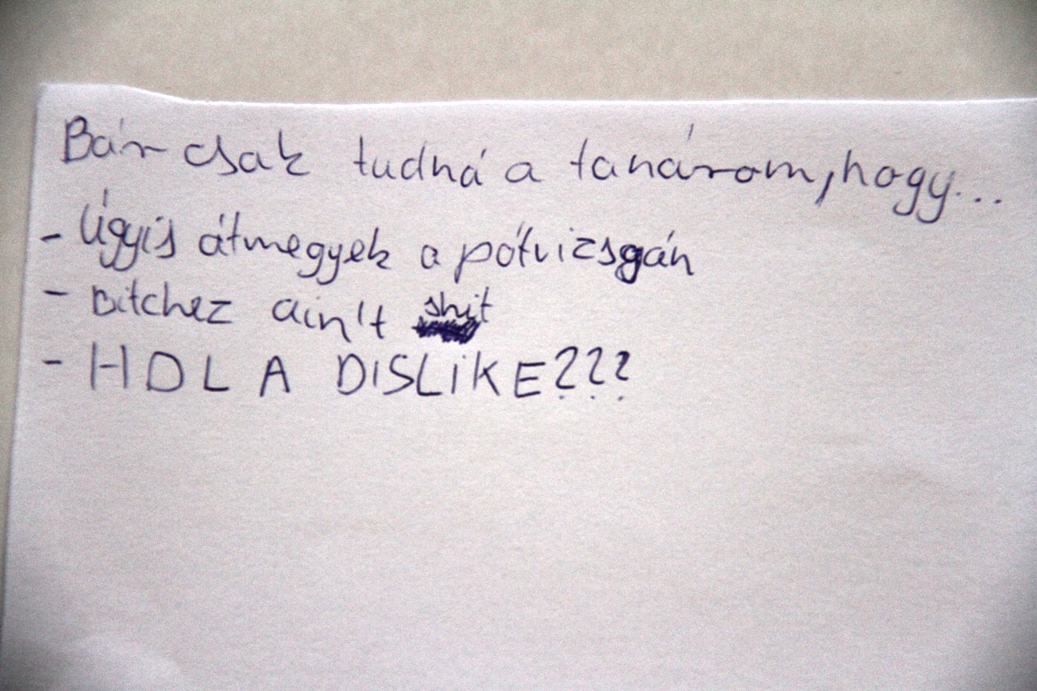 Bár csak tudná a tanárom, hogy...
- Úgyis átmegyek a pótvizsgán
- Bitchez ain't shit
- HOL A DISLIKE???